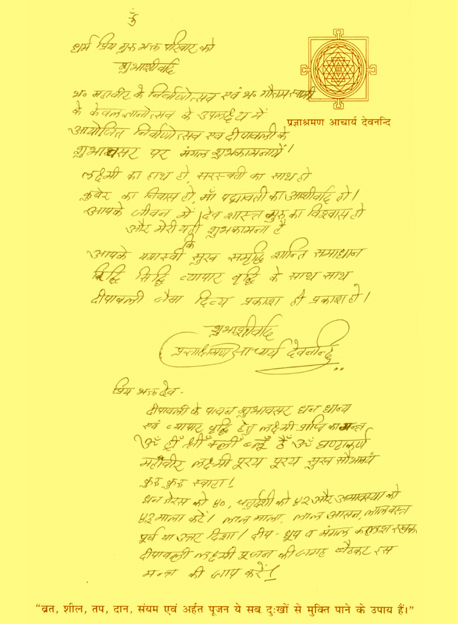 ॐ
धर्म प्रिय गुरु भक्त परिवार को
शुभाशीर्वाद
भ. महावीर के निर्वाणोत्सव एवं भ. गौतम स्वामी
के केवलज्ञानोत्सव के उपलक्ष्य में
प्रज्ञाश्रमण आचार्य देवनन्दि
आयोजित निर्वाणोत्सव एवं दीपावली के
शुभावसर पर मंगल शुभकामनायें।
लक्ष्मी का हाथ हो, सरस्वती का साथ हो
कुबेर का निवास हो, माँ पद्मावती का आशीर्वाद हो।
आपके जीवन में देव शास्त्र गुरु का विश्वास हो
और मेरी यही शुभकामना है
कि
आपके यशस्वी सुख समृद्धि शान्ति समाधान
रिद्धि सिद्धि व्यापार वृद्धि के साथ साथ
दीपावली जैसा दिव्य प्रकाश ही प्रकाश हो।
शुभाशीर्वाद
प्रज्ञाश्रमण आचार्य देवनन्दि
प्रिय भक्त देव -
दीपावली के पावन शुभावसर धन धान्य
एवं व्यापार वृद्धि हेतु लक्ष्मी प्राप्ति का मन्त्र
ॐ ह्रीं श्रीं क्लीं ब्लूँ ॐ घण्टाकर्ण
महावीर लक्ष्मी पूरय पूरय सुख सौभाग्यं
कुरु कुरु स्वाहा।
धन तेरस को ४०, चतुर्दशी को ४२ और अमावस्या को
४३ माला करें। लाल माला, लाल आसन, लाल वस्त्र
पूर्व या उत्तर दिशा। दीप - धूप व मंगल कलश रखकर
दीपावली लक्ष्मी पूजन की जगह बैठकर इस
मन्त्र की जाप करें।
“व्रत, शील, तप, दान, संयम एवं अर्हत पूजन ये सब दुःखों से मुक्ति पाने के उपाय हैं।”